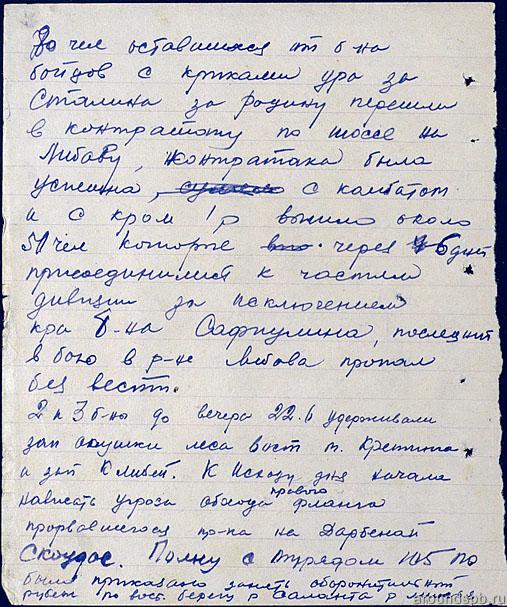 80 чел оставшихся от б-на
бойцов с криками ура за
Сталина за родину перешли
в контратаку по шоссе на
Либаву, контратака была
успешна, с комбатом
и с кром 1 р вышло около
51 чел которые через 6 дней
присоединились к частям
дивизии за исключением
кра б-на Сафиулина, последний
в бою в р-не Либава пропал
без вести.
2 и 3 б-ны до вечера 22.6 удерживали
зап опушки леса вост м. Кретинга
и зап К. К исходу дня начала
нависать угроза обхода правого фланга
прорвавшегося пр-ка на Дарбеной
Скоудас. Полку с отрядом 105 ПО
было приказано занять оборонительный
рубеж по вост. берегу р Саланта р
aroundspb.ru